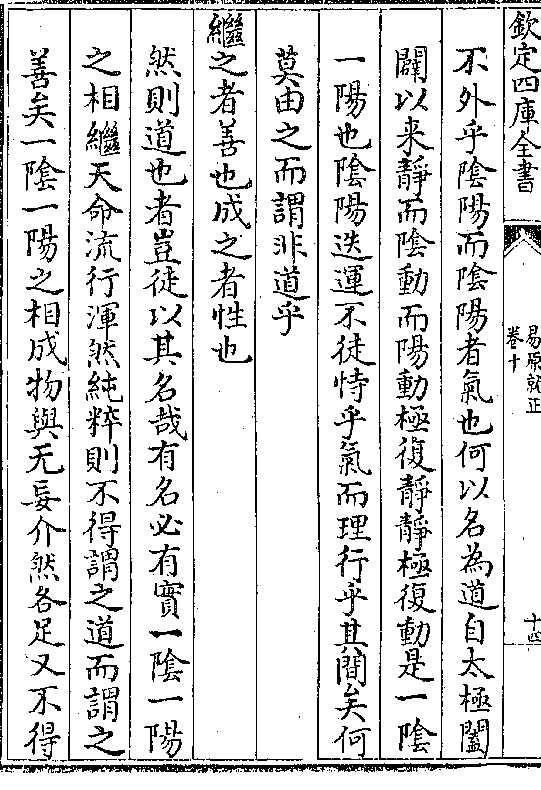 欽定四庫全書
易原就正
卷十
十四
不外乎陰陽而陰陽者氣也何以名為道自太極闔
闢以来靜而陰動而陽動極復靜靜極復動是一陰
一陽也陰陽迭運不徒恃乎氣而理行乎其間矣何
莫由之而謂非道乎
繼之者善也成之者性也
然則道也者豈徒以其名哉有名必有實一陰一陽
之相繼天命流行渾然純粹則不得謂之道而謂之
善矣一陰一陽之相成物與无妄介然各足又不得